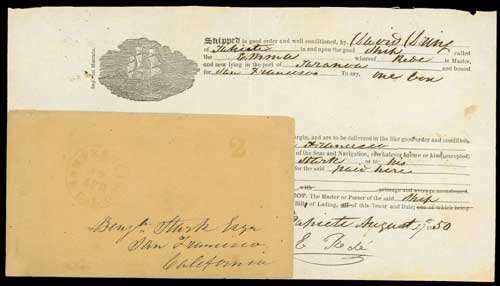 Shipped in good order and well conditioned, by David
of Papeete and is upon the good Ship called
the Emma whereof is Master,
and now lying in the port of and bound
for San Francisco To say, one Box
argin, and are to be delivered in the like good order and condition,
Francisco
of the Seas and Navigation, of whatever nature or kind, excepted)
Sturk or to his
for the said paid here
with primage and average accustomed.
OF, The Master or Purser of the said Ship
Bills of Lading, all of this Tenor and Date; one of which being
Papeete August 1850
E
2
CAL
Benj. Sturk Esqr
San Francisco
California